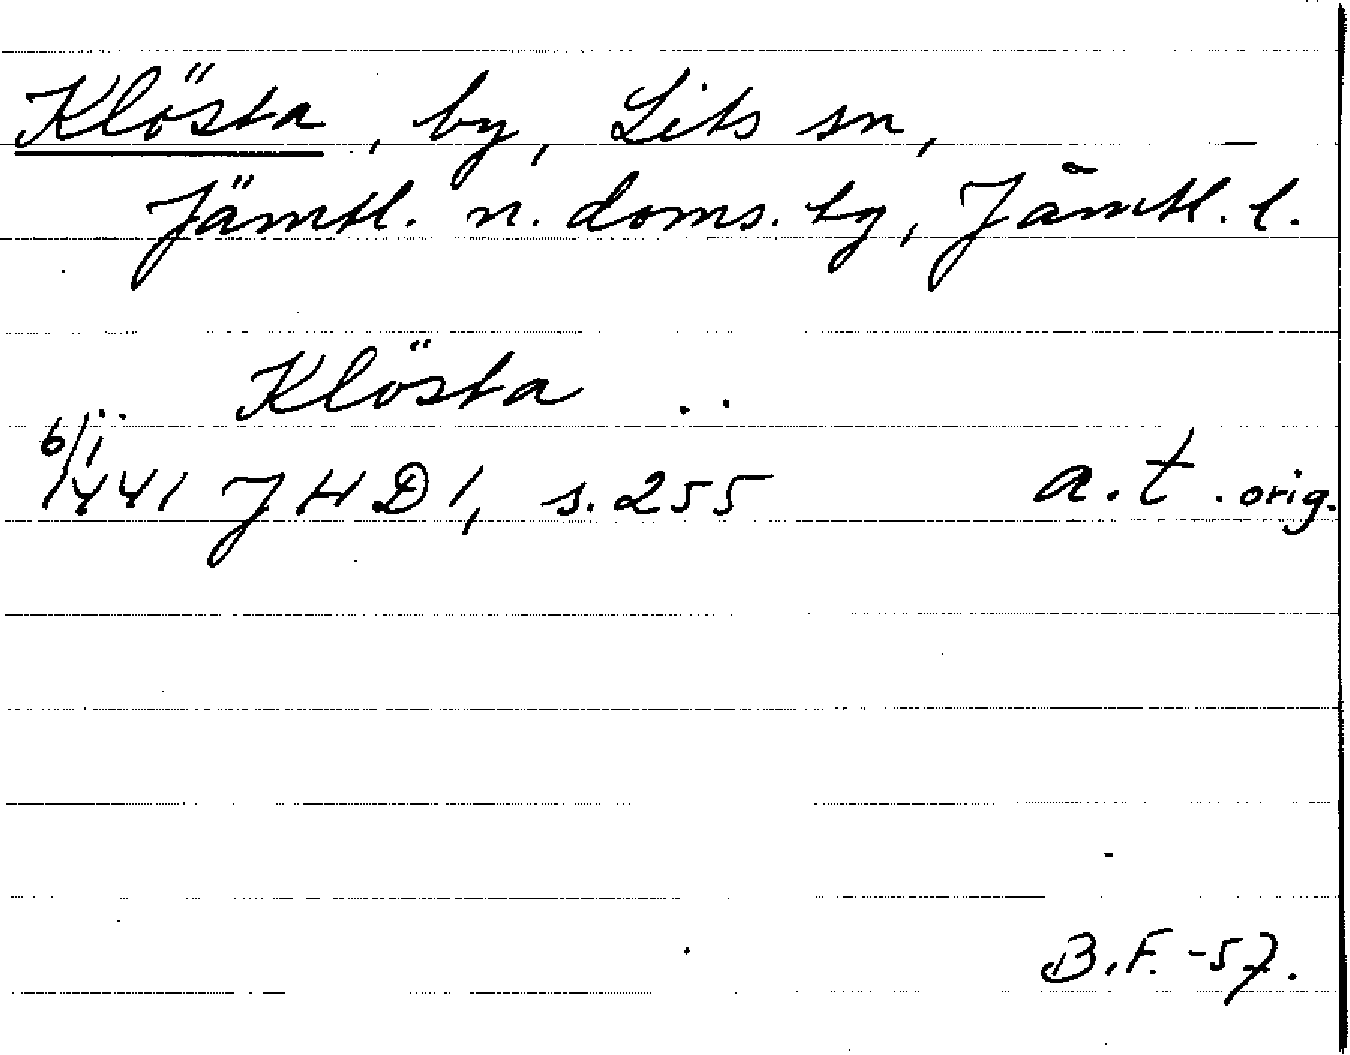 Klösta, by, Lits sn,
Jämtl. n. doms. tg, Jämtl. l.
.. Klösta ..
6/1 1441 JHD 1, s. 255 a. t. orig.
B.F. -57.